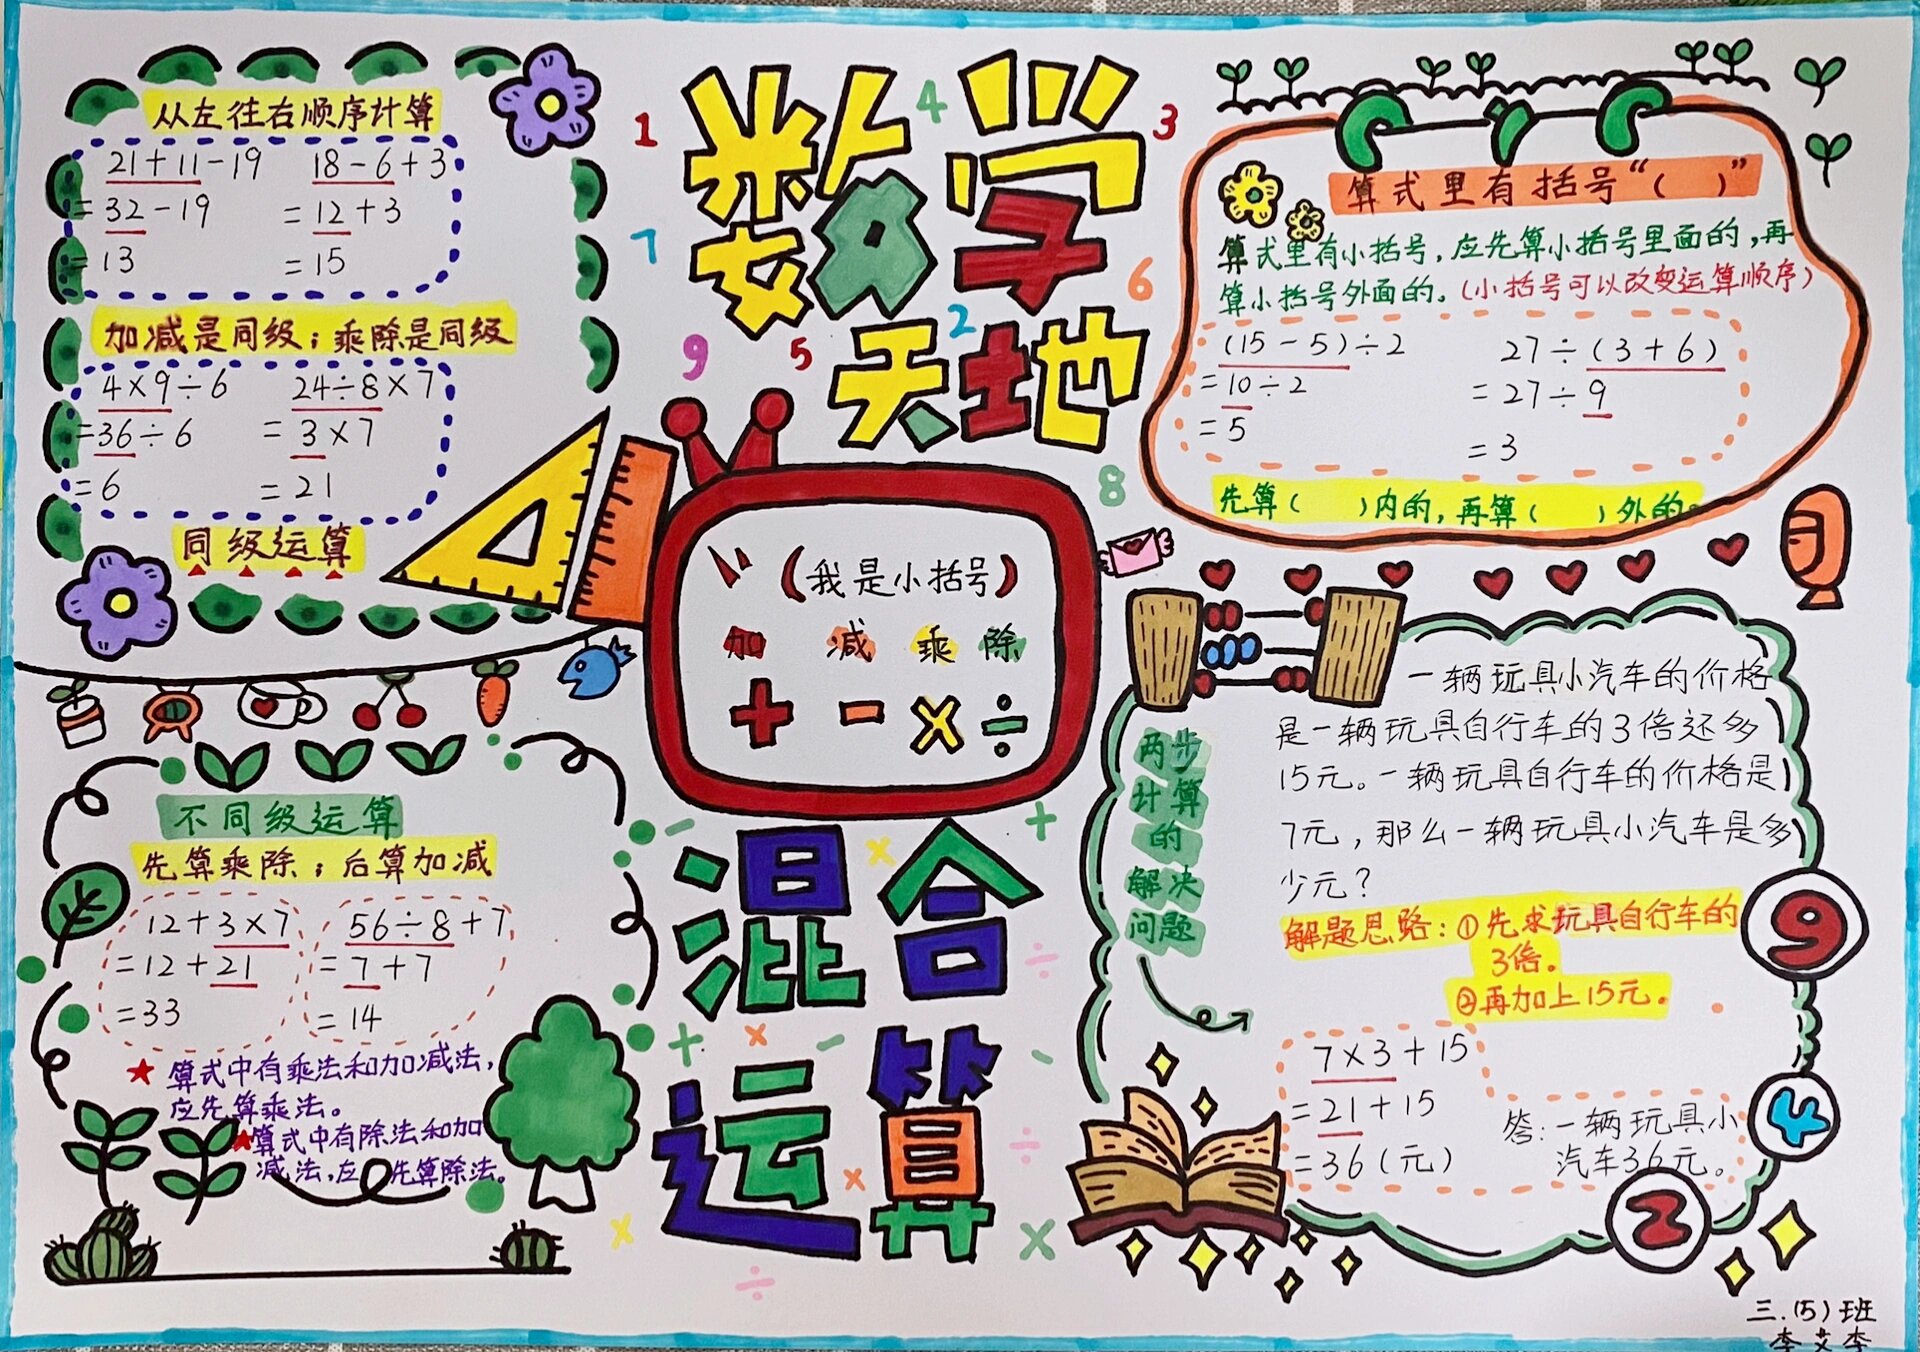 数学
天地
1
4
3
7
6
2
9
5
8
从左往右顺序计算
21+11-19 18-6+3
=32-19 =12+3
=13 =15
加减是同级；乘除是同级
4×9÷6 24÷8×7
=36÷6 =3×7
=6 =21
同级运算
算式里有括号“( )”
算式里有小括号，应先算小括号里面的，再
算小括号外面的。(小括号可以改变运算顺序)
(15-5)÷2 27÷(3+6)
=10÷2 =27÷9
=5 =3
先算( )内的，再算( )外的。
(我是小括号)
加 减 乘 除
+ - × ÷
混合
运算
不同级运算
先算乘除；后算加减
12+3×7 56÷8+7
=12+21 =7+7
=33 =14
★算式中有乘法和加减法，
应先算乘法。
★算式中有除法和加
减法，应先算除法。
两步
计算
的
解决
问题
一辆玩具小汽车的价格
是一辆玩具自行车的3倍还多
15元。一辆玩具自行车的价格是
7元，那么一辆玩具小汽车是多
少元？
解题思路：①先求玩具自行车的
3倍。
②再加上15元。
7×3+15
=21+15
=36(元)
答：一辆玩具小
汽车36元。
9
4
2
三.(5)班
李艾李